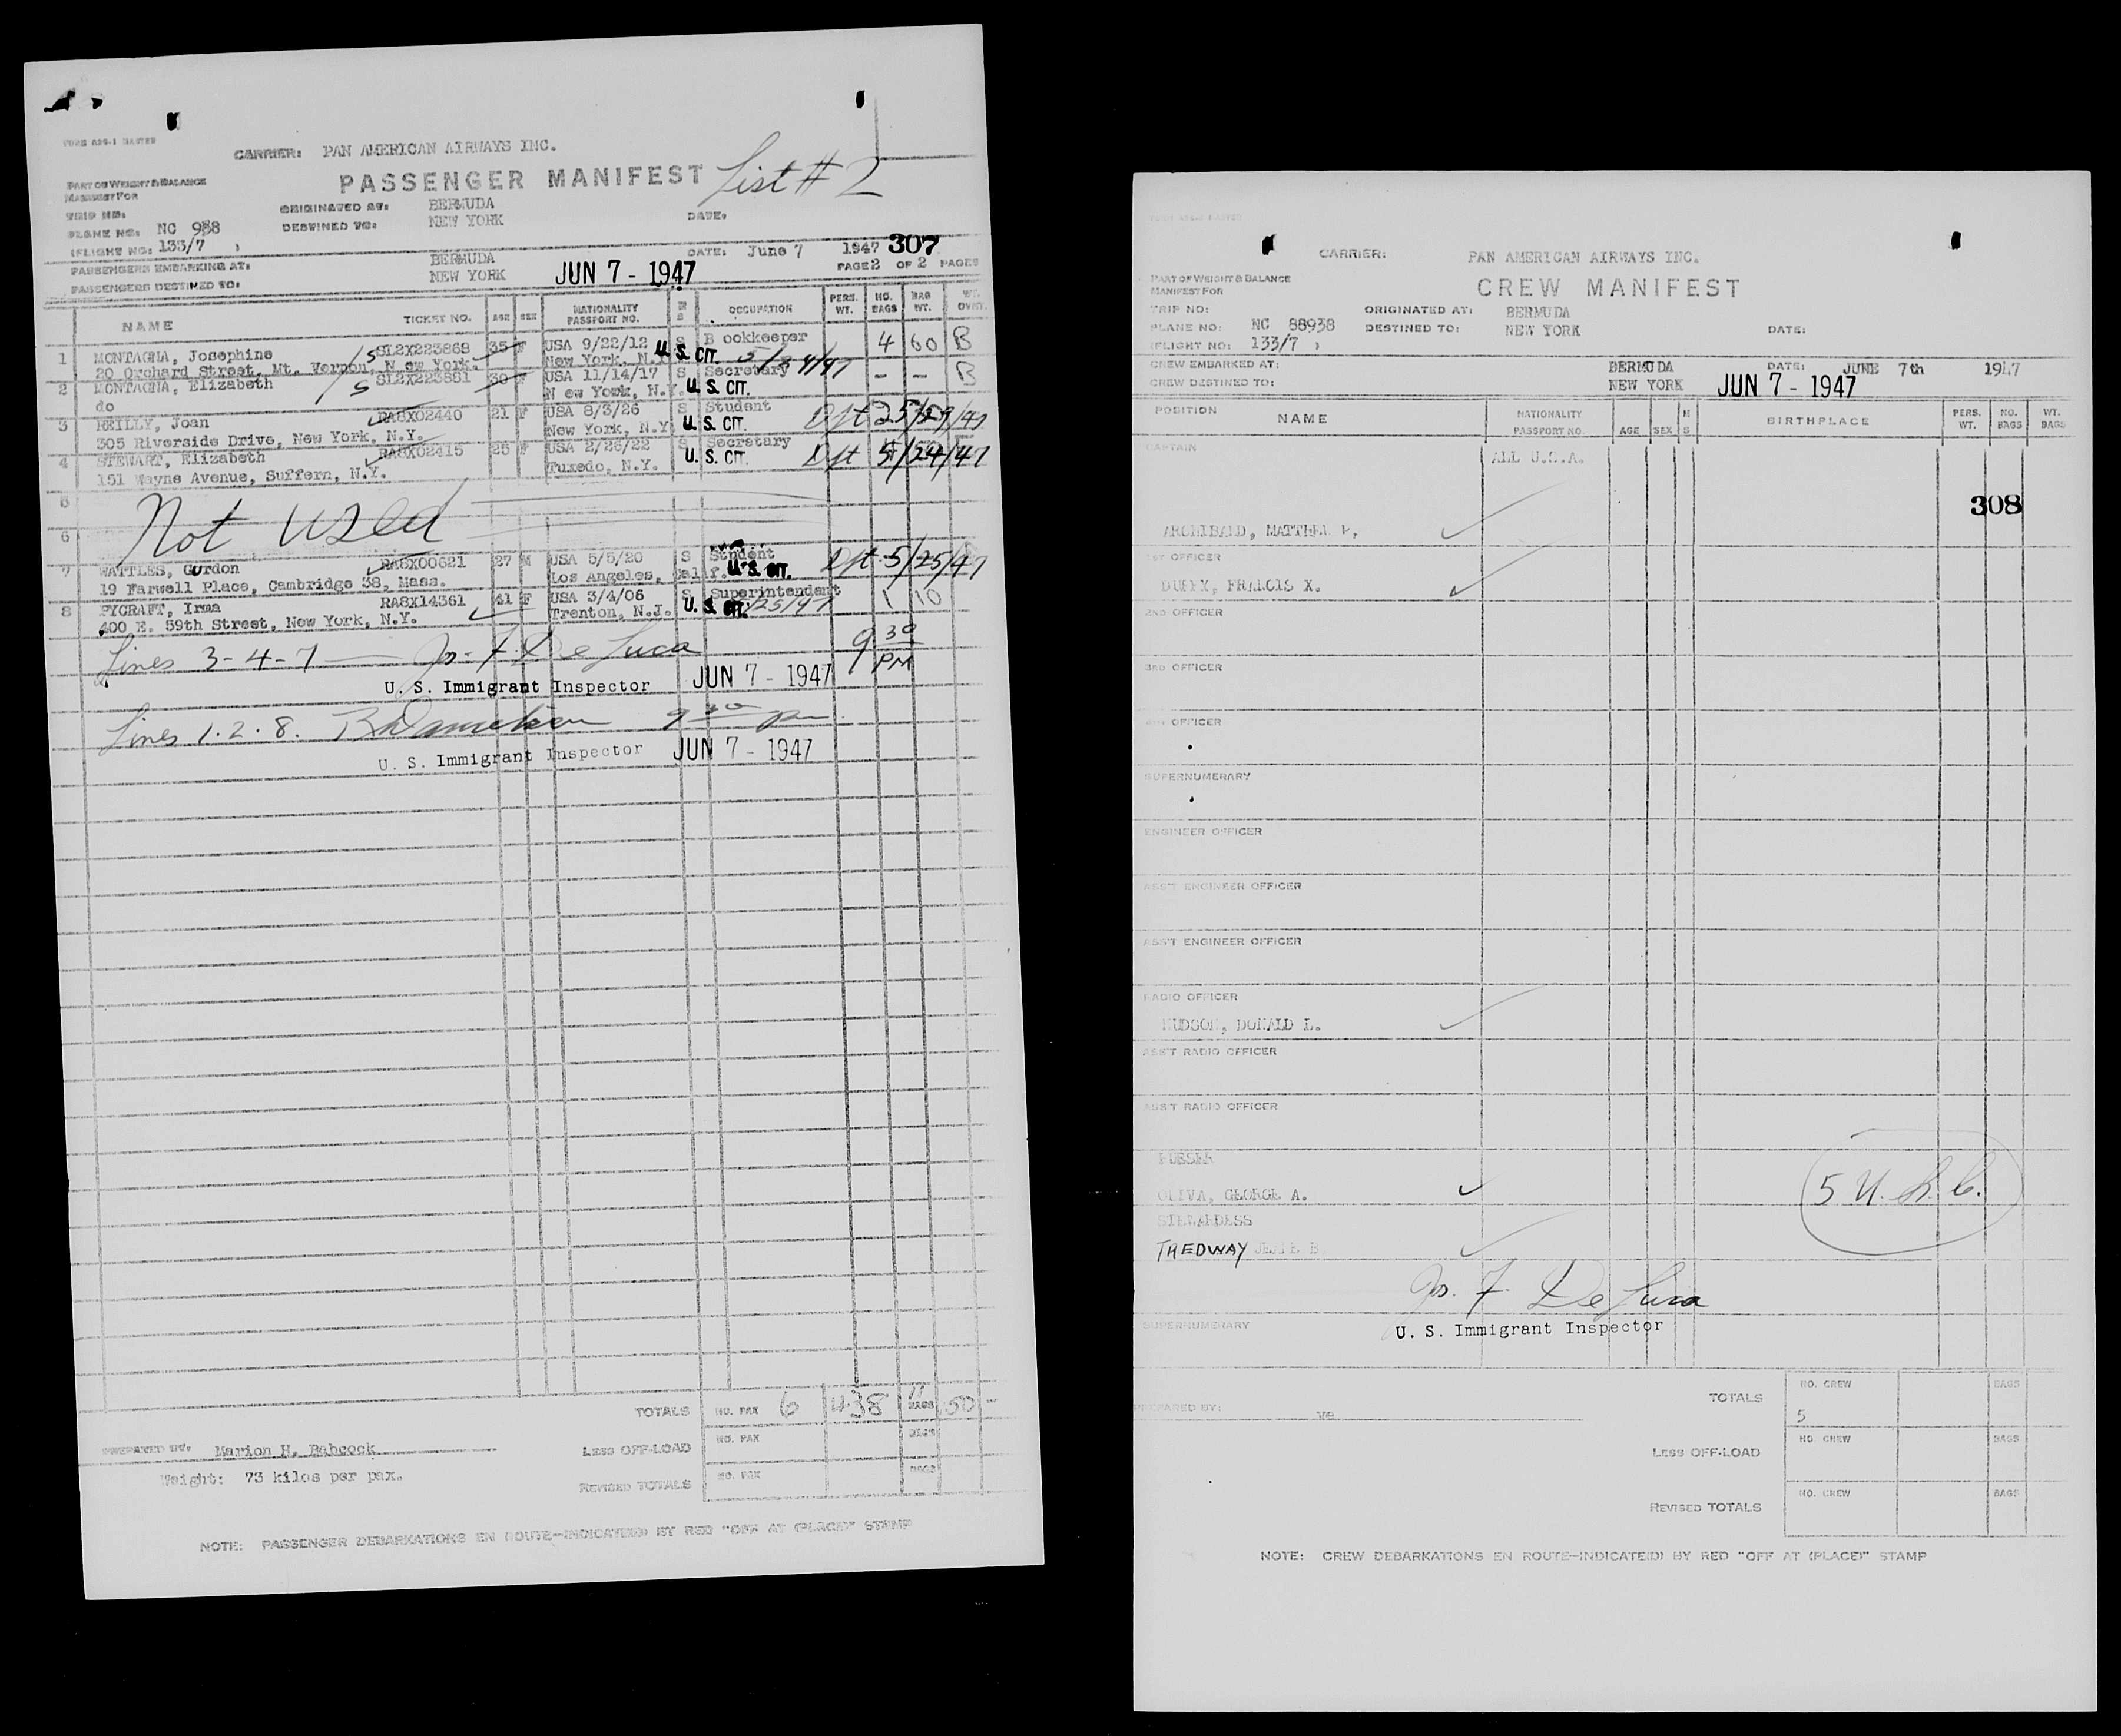 FORM APG-1 MASTER
CARRIER: PAN AMERICAN AIRWAYS INC.
PASSENGER MANIFEST List # 2
PART OF WEIGHT & BALANCE
MANIFEST FOR
TRIP NO: ORIGINATED AT: BERMUDA
PLANE NO: NC 938 DESTINED TO: NEW YORK DATE:
(FLIGHT NO: 133/7 )
PASSENGERS EMBARKING AT: BERMUDA DATE: June 7 1947 307
PASSENGERS DESTINED TO: NEW YORK JUN 7 - 1947 PAGE 2 OF 2 PAGES
NAME TICKET NO. AGE SEX NATIONALITY PASSPORT NO. M S OCCUPATION PERS. WT. NO. BAGS BAG WT. WT. OVWT.
1 MONTAGNA, Josephine SL2X223868 35 F USA 9/22/12 S B ookkeeper 4 60 B
20 Orchard Street, Mt. Vernon, N ew York. New York, N.Y. U. S. CIT. 5/24/47
2 MONTAGNA, Elizabeth SL2X223881 30 F USA 11/14/17 S Secretary - - B
do N ew York, N.Y. U. S. CIT.
3 REILLY, Joan RA8X02440 21 F USA 8/3/26 S Student
305 Riverside Drive, New York, N.Y. New York, N.Y. U. S. CIT. Dpt
4 STEWART, Elizabeth RA8X02415 25 F USA 2/26/22 S Secretary
151 Wayne Avenue, Suffern, N.Y. Tuxedo, N.Y. U. S. CIT. Dpt 5/24/47
5
6 Not used
7 WATTLES, Gordon RA8X00621 27 M USA 5/5/20 S Student
19 Farwell Place, Cambridge 38, Mass. Los Angeles, Calif. U. S. CIT. Dpt 5/25/47
8 PYCRAFT, Irma RA8X14361 41 F USA 3/4/06 S Superintendent 1 10
400 E. 59th Street, New York, N.Y. Trenton, N.J. U. S. CIT. 5/25/47
Lines 3-4-7 — Jos. F. De Luca 9 30 PM
U. S. Immigrant Inspector JUN 7 - 1947
Lines 1. 2. 8.
U. S. Immigrant Inspector JUN 7 - 1947
TOTALS NO. PAX 6 438 11 BAGS
PREPARED BY: Marion H. Babcock LESS OFF-LOAD NO. PAX BAGS
Weight: 73 kilos per pax. REVISED TOTALS NO. PAX BAGS
NOTE: PASSENGER DEBARKATIONS EN ROUTE—INDICATE(D) BY RED "OFF AT (PLACE)" STAMP
CARRIER: PAN AMERICAN AIRWAYS INC.
PART OF WEIGHT & BALANCE
MANIFEST FOR
CREW MANIFEST
TRIP NO: ORIGINATED AT: BERMUDA
PLANE NO: NC 88938 DESTINED TO: NEW YORK DATE:
(FLIGHT NO: 133/7 )
CREW EMBARKED AT: BERMUDA DATE: JUNE 7th 1947
CREW DESTINED TO: NEW YORK JUN 7 - 1947
POSITION NAME NATIONALITY PASSPORT NO. AGE SEX M S BIRTHPLACE PERS. WT. NO. BAGS WT. BAGS
CAPTAIN ALL U.S.A.
308
ARCHIBALD, MATTHEW
1ST OFFICER
DUFFY, FRANCIS X.
2ND OFFICER
3RD OFFICER
4TH OFFICER
SUPERNUMERARY
ENGINEER OFFICER
ASS'T ENGINEER OFFICER
ASS'T ENGINEER OFFICER
RADIO OFFICER
HUDSON, DONALD L.
ASS'T RADIO OFFICER
ASS'T RADIO OFFICER
PURSER
OLIVA, GEORGE A. 5 U. S. C.
STEWARDESS
TREDWAY
Jos. F. De Luca
SUPERNUMERARY U. S. Immigrant Inspector
TOTALS NO. CREW 5 BAGS
PREPARED BY:
LESS OFF-LOAD NO. CREW BAGS
REVISED TOTALS NO. CREW BAGS
NOTE: CREW DEBARKATIONS EN ROUTE—INDICATE(D) BY RED "OFF AT (PLACE)" STAMP